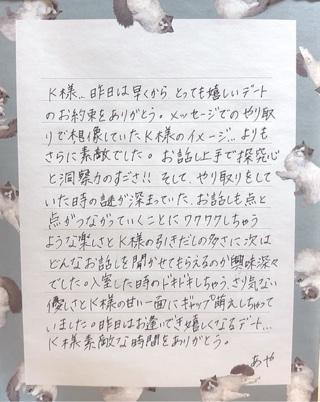 K様… 昨日は早くから とっても嬉しいデート
のお約束をありがとう。メッセージでのやり取
りで想像していたK様のイメージ… よりも
さらに素敵でした。お話し上手で探究心
と洞察力のすごさ!! そして、やり取りをして
いた時の謎が深まっていた、お話しも点と
点がつながっていくことにワクワクしちゃう
ような楽しさとK様の引きだしの多さに次は
どんなお話しを聞かせてもらえるのか興味深々
でした。入室した時のドキドキしちゃう、さり気ない
優しさとK様の甘い一面にギャップ萌えしちゃって
いました。昨日はお逢いでき嬉しくなるデート…
K様素敵な時間をありがとう。
あや